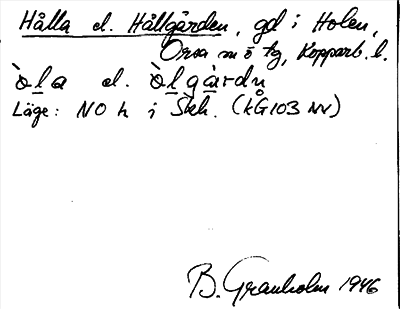 Hålla el. Hållgården, gd i Holen,
Orsa sn ö tg, Kopparb. l.
òl̲a el. òl̲gàr̲dn̥
Läge: NO h i Skh. (KG103 NV)
B. Granholm 1946